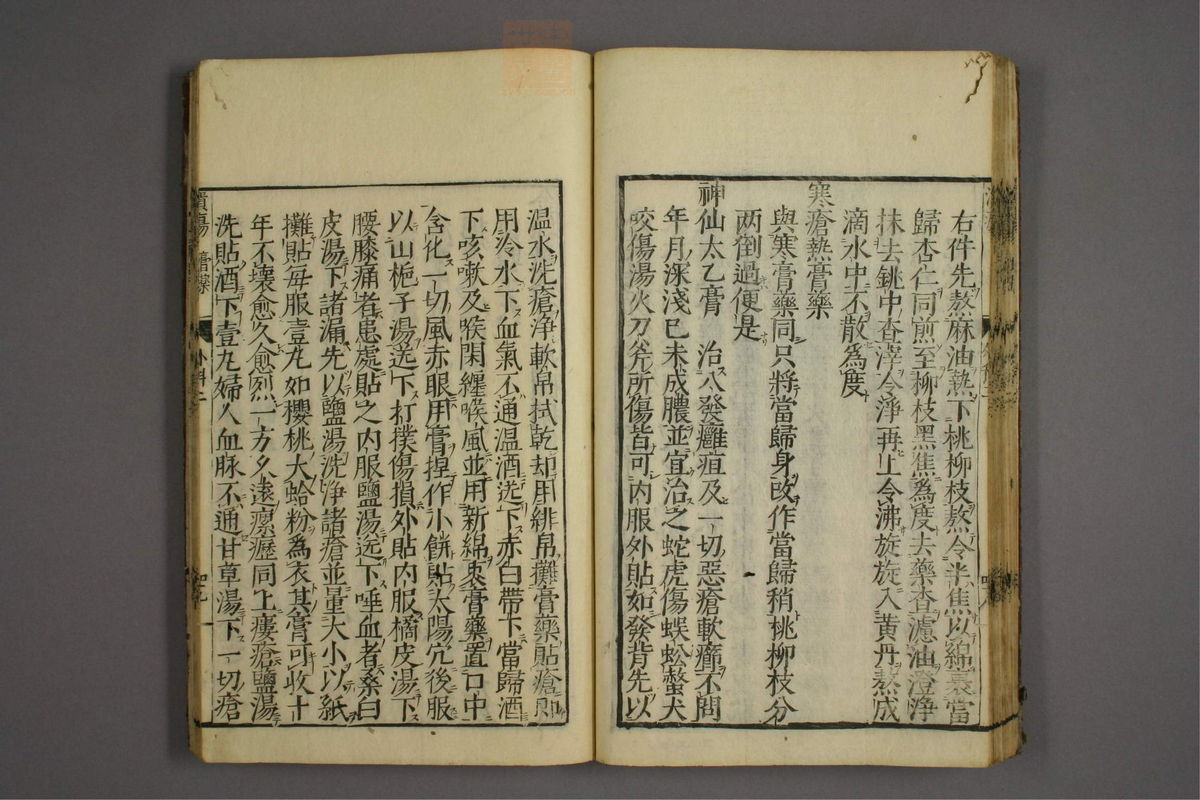 右件先熬麻油熱下桃柳枝熬令半焦以綿裹當
歸杏仁同煎至柳枝黑焦爲度去藥查濾油澄淨
抹去銚中查滓令淨再上令沸旋旋入黄丹熬成
滴水中不散爲度
寒瘡熱膏藥
與寒膏藥同只將當歸身改作當歸稍桃柳枝分
两倒過便是
神仙太乙膏 治八發癰疽及一切惡瘡軟癤不問
年月深淺已未成膿並宜治之蛇虎傷蜈蚣螫犬
咬傷湯火刀斧所傷皆可内服外貼如發背先以
温水洗瘡淨軟帛拭乾却用緋帛攤膏藥貼瘡即
用冷水下血氣不通温酒送下赤白帶下當歸酒
下咳嗽及喉閑纏喉風並用新綿裹膏藥置口中
含化一切風赤眼用膏捏作小餅貼太陽穴後服
以山梔子湯送下打撲傷損外貼内服橘皮湯下
腰膝痛者患處貼之内服鹽湯送下唾血者桑白
皮湯下諸漏先以鹽湯洗淨諸瘡並量大小以紙
攤貼每服壹丸如櫻桃大蛤粉爲衣其膏可收十
年不壞愈久愈烈一方久遠瘰癧同上慶瘡鹽湯
洗貼酒下壹丸婦人血脉不通甘草湯下一切瘡
潰瘍 膏藥 外科二